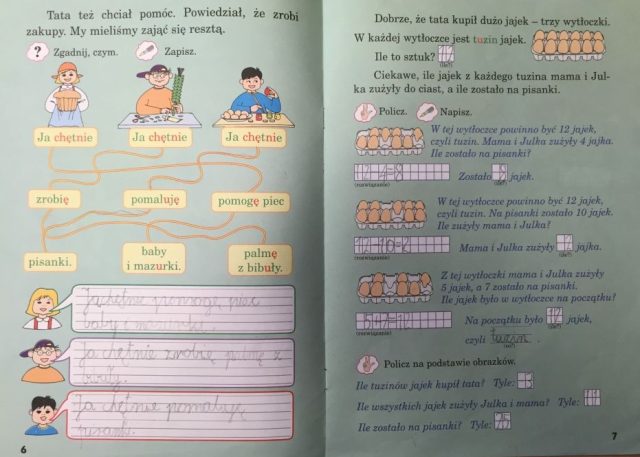 Tata też chciał pomóc. Powiedział, że zrobi
zakupy. My mieliśmy zająć się resztą.
? Zgadnij, czym. Zapisz.
Ja chętnie Ja chętnie Ja chętnie
zrobię pomaluję pomogę piec
pisanki. baby
i mazurki. palmę
z bibuły.
Ja chętnie pomogę piec
baby i mazurki.
Ja chętnie zrobię palmę z
Ja chętnie pomaluję
pisanki.
6
Dobrze, że tata kupił dużo jajek – trzy wytłoczki.
W każdej wytłoczce jest tuzin jajek.
Ile to sztuk?
(ile?)
Ciekawe, ile jajek z każdego tuzina mama i Jul-
ka zużyły do ciast, a ile zostało na pisanki.
Policz. Napisz.
W tej wytłoczce powinno być 12 jajek,
czyli tuzin. Mama i Julka zużyły 4 jajka.
Ile zostało na pisanki?
12-4=8 Zostało 8 jajek.
(rozwiązanie) (ile?)
W tej wytłoczce powinno być 12 jajek,
czyli tuzin. Na pisanki zostało 10 jajek.
Ile zużyły mama i Julka?
12-10=2 Mama i Julka zużyły 2 jajka.
(rozwiązanie) (ile?)
Z tej wytłoczki mama i Julka zużyły
5 jajek, a 7 zostało na pisanki.
Ile jajek było w wytłoczce na początku?
5+7=12 Na początku było 12 jajek,
(rozwiązanie) (ile?)
czyli tuzin.
(co?)
Policz na podstawie obrazków.
Ile tuzinów jajek kupił tata? Tyle: 3
Ile wszystkich jajek zużyły Julka i mama? Tyle: 11
Ile zostało na pisanki? Tyle: 25
7